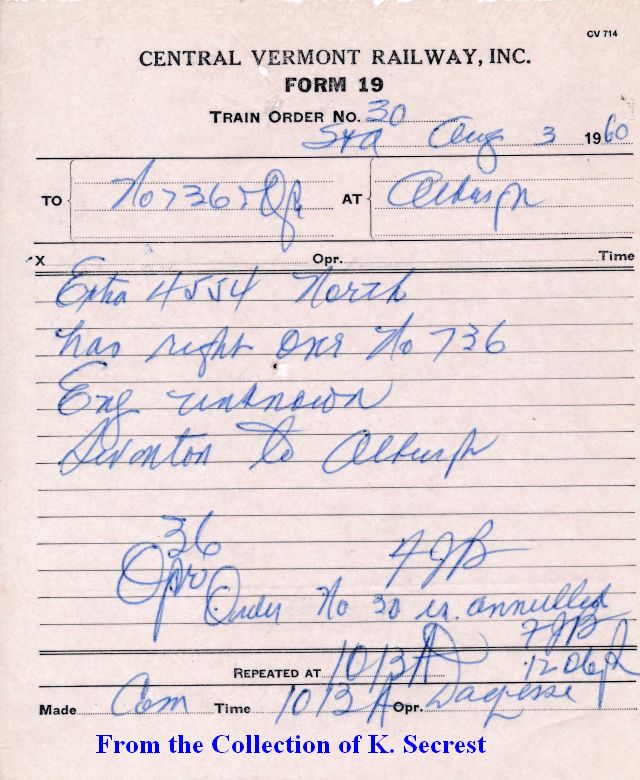 CV 714
CENTRAL VERMONT RAILWAY, INC.
FORM 19
TRAIN ORDER NO. 30
Sta Aug 3 1960
TO No 736 Opr AT Alburgh
X Opr. Time
Extra 4554 North
has right over No 736
Eng unknown
Swanton to Alburgh
36
Opr FJB
Order No 30 is annulled
FJB
REPEATED AT 1013A 1206P
Made Com Time 1013A Opr.
From the Collection of K. Secrest